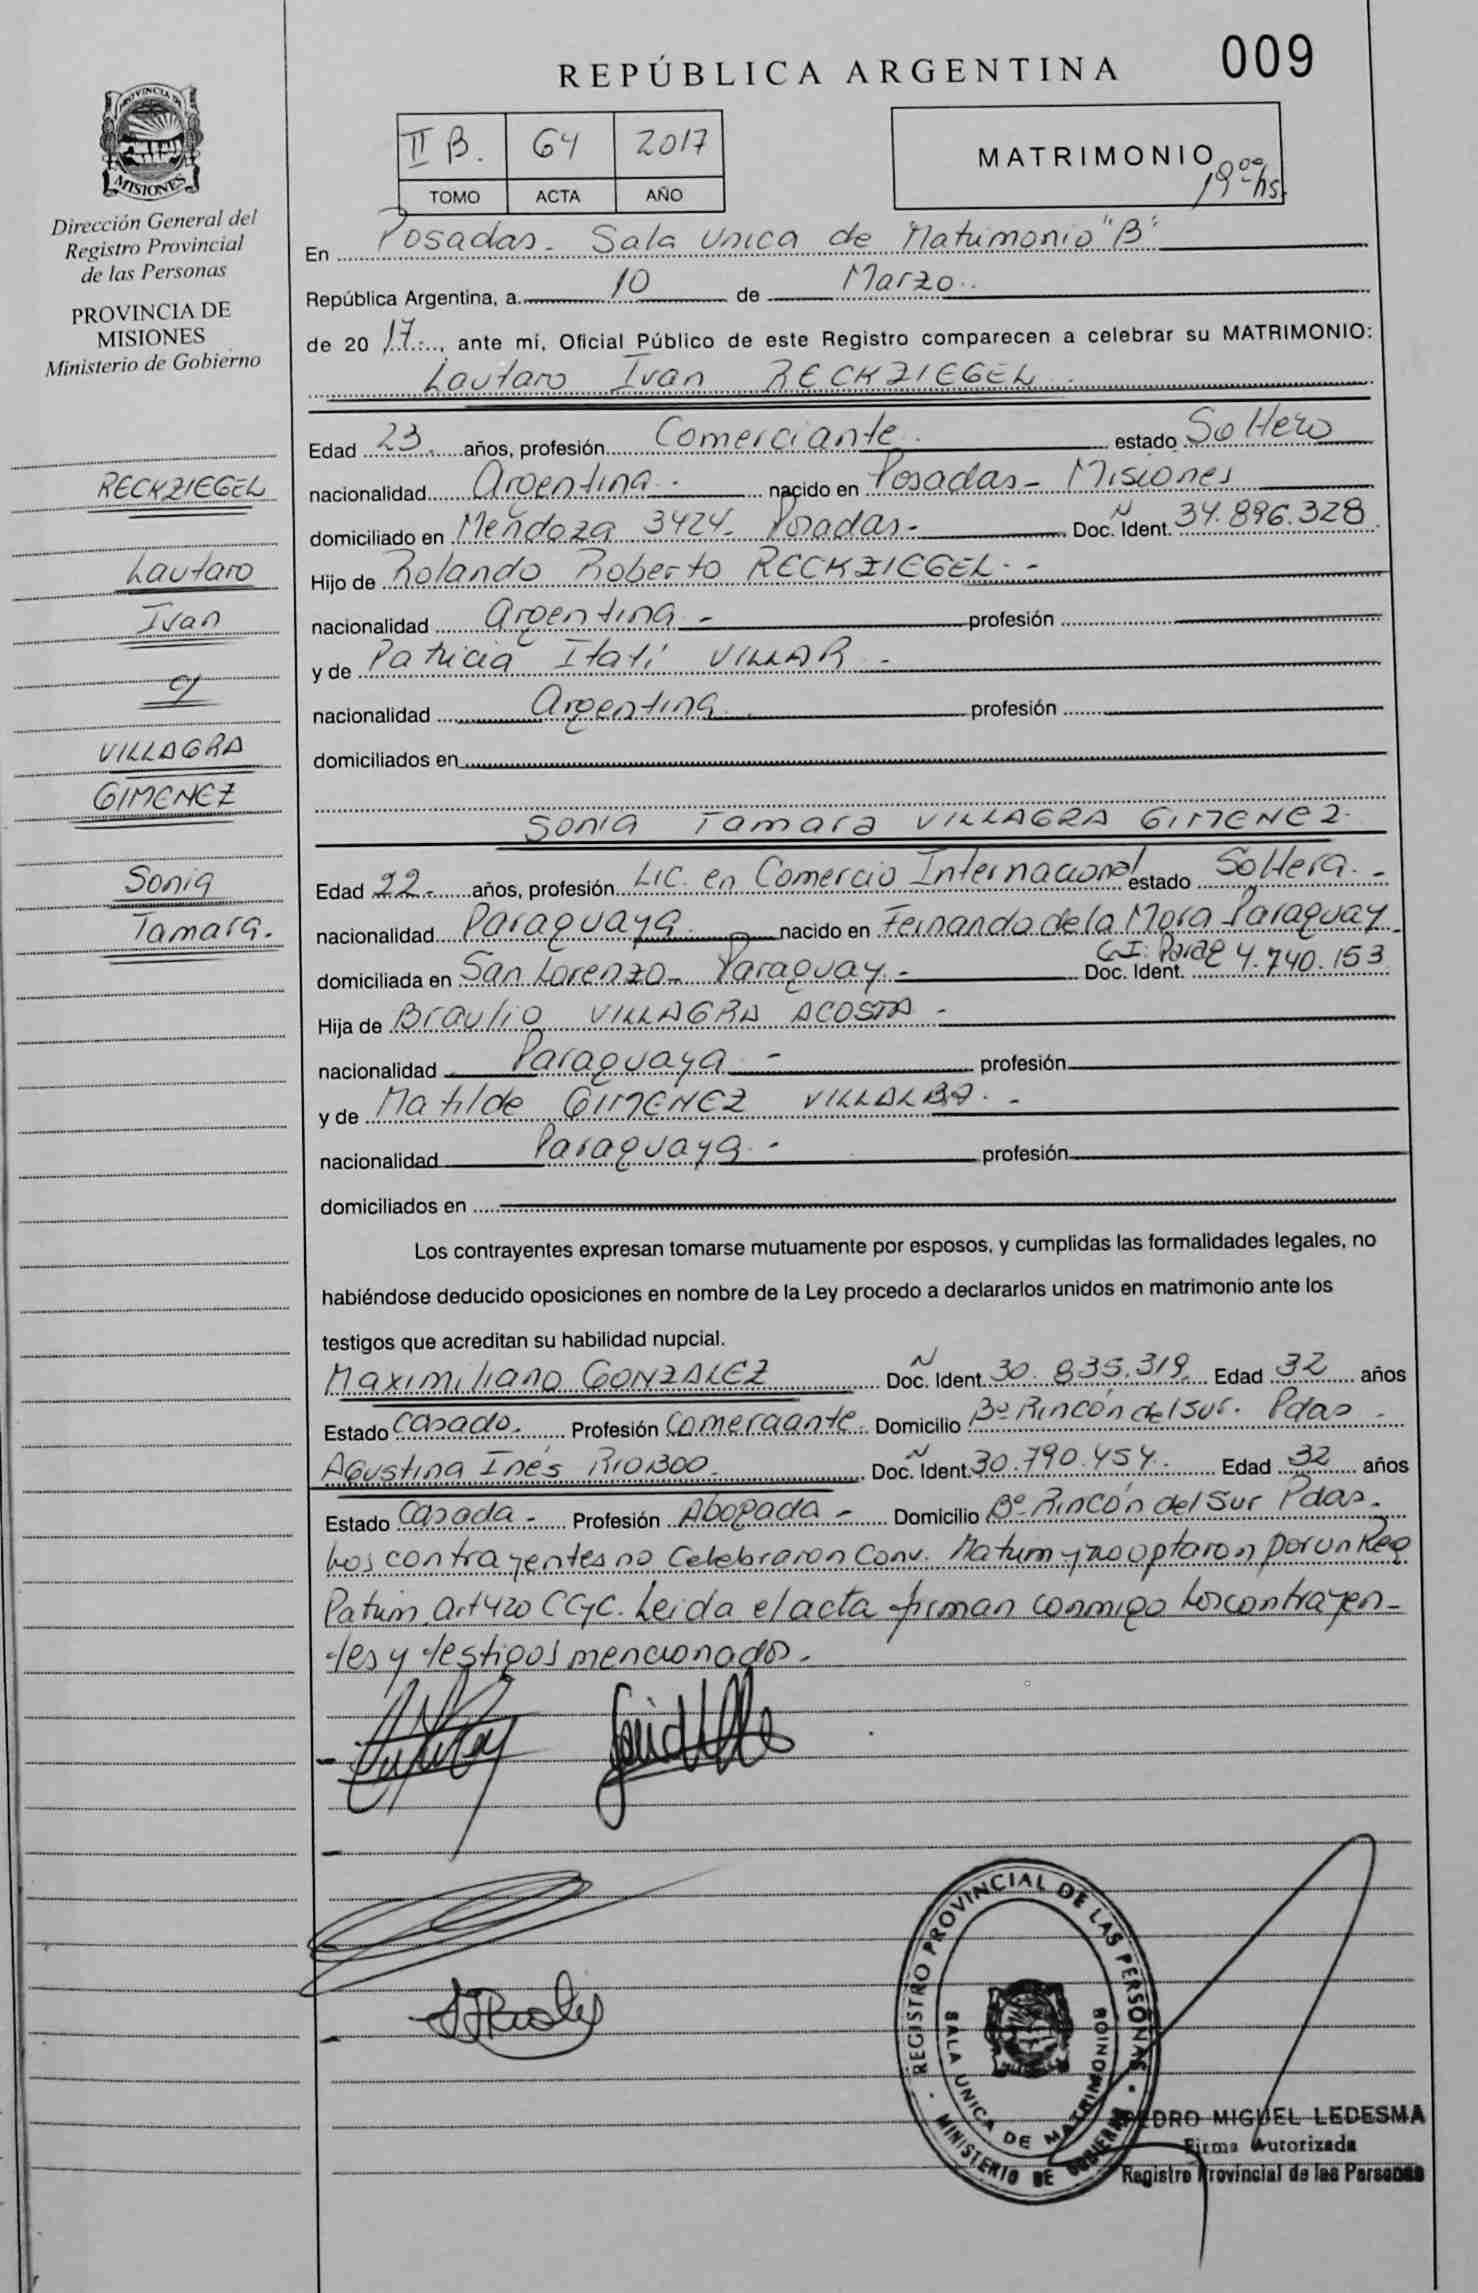 009
REPÚBLICA ARGENTINA
II B. 64 2017
TOMO ACTA AÑO
MATRIMONIO
19 00 hs.
PROVINCIA DE
MISIONES
Dirección General del
Registro Provincial
de las Personas
PROVINCIA DE
MISIONES
Ministerio de Gobierno
RECKZIEGEL
Lautaro
Ivan
c/
VILLAGRA
GIMENEZ
Sonia
Tamara.
En Posadas - Sala Unica de Matrimonio "B"
República Argentina, a 10 de Marzo
de 20 17, ante mí, Oficial Público de este Registro comparecen a celebrar su MATRIMONIO:
Lautaro Ivan RECKZIEGEL
Edad 23 años, profesión Comerciante. estado Soltero
nacionalidad Argentina. nacido en Posadas - Misiones
domiciliado en Mendoza 3424 - Posadas - Doc. Ident. N 34.896.328
Hijo de Rolando Roberto RECKZIEGEL. -
nacionalidad Argentina - profesión
y de Patricia Itatí VILLAR -
nacionalidad Argentina profesión
domiciliados en
Sonia Tamara VILLAGRA GIMENEZ
Edad 22 años, profesión Lic. en Comercio Internacional estado Soltera. -
nacionalidad Paraguaya nacido en Fernando de la Mora - Paraguay
domiciliada en San Lorenzo - Paraguay - Doc. Ident. C.I. Parag 4.740.153
Hija de Braulio VILLAGRA ACOSTA -
nacionalidad Paraguaya - profesión
y de Matilde GIMENEZ VILLALBA. -
nacionalidad Paraguaya - profesión
domiciliados en
Los contrayentes expresan tomarse mutuamente por esposos, y cumplidas las formalidades legales, no
habiéndose deducido oposiciones en nombre de la Ley procedo a declararlos unidos en matrimonio ante los
testigos que acreditan su habilidad nupcial.
Maximiliano GONZALEZ Doc. Ident. N 30.835.319 Edad 32 años
Estado Casado. Profesión Comerciante Domicilio Bº Rincón del Sur. Pdas -
Agustina Inés RIOBOO. Doc. Ident. N 30.790.454. Edad 32 años
Estado Casada - Profesión Abogada - Domicilio Bº Rincón del Sur Pdas.
Los contrayentes no Celebraron Conv. Matrim y no optaron por un Reg
Patrim Art 420 CCyC. Leida el acta firman conmigo los contrayen-
tes y testigos mencionados.
REGISTRO PROVINCIAL DE LAS PERSONAS
SALA UNICA DE MATRIMONIOS
MINISTERIO DE GOBIERNO
PEDRO MIGUEL LEDESMA
Firma Autorizada
Registro Provincial de las Personas